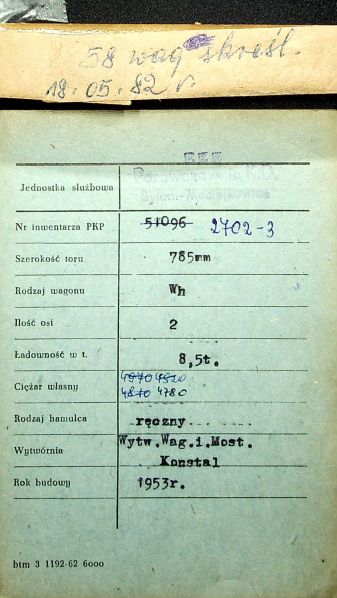 58 wag skreśl.
18.05.82 r.
Parowozownia K.D.
Bytom-Maciejkowice
Jednostka służbowa
Nr inwentarza PKP 51096 2702-3
Szerokość toru 785mm
Rodzaj wagonu Wh
Ilość osi 2
Ładowność w t. 8,5t.
4970 4820
Ciężar własny 4810 4780
Rodzaj hamulca ręczny
Wytw.Wag.i.Most.
Wytwórnia Konstal
Rok budowy 1953r.
btm 3 1192-62 6000